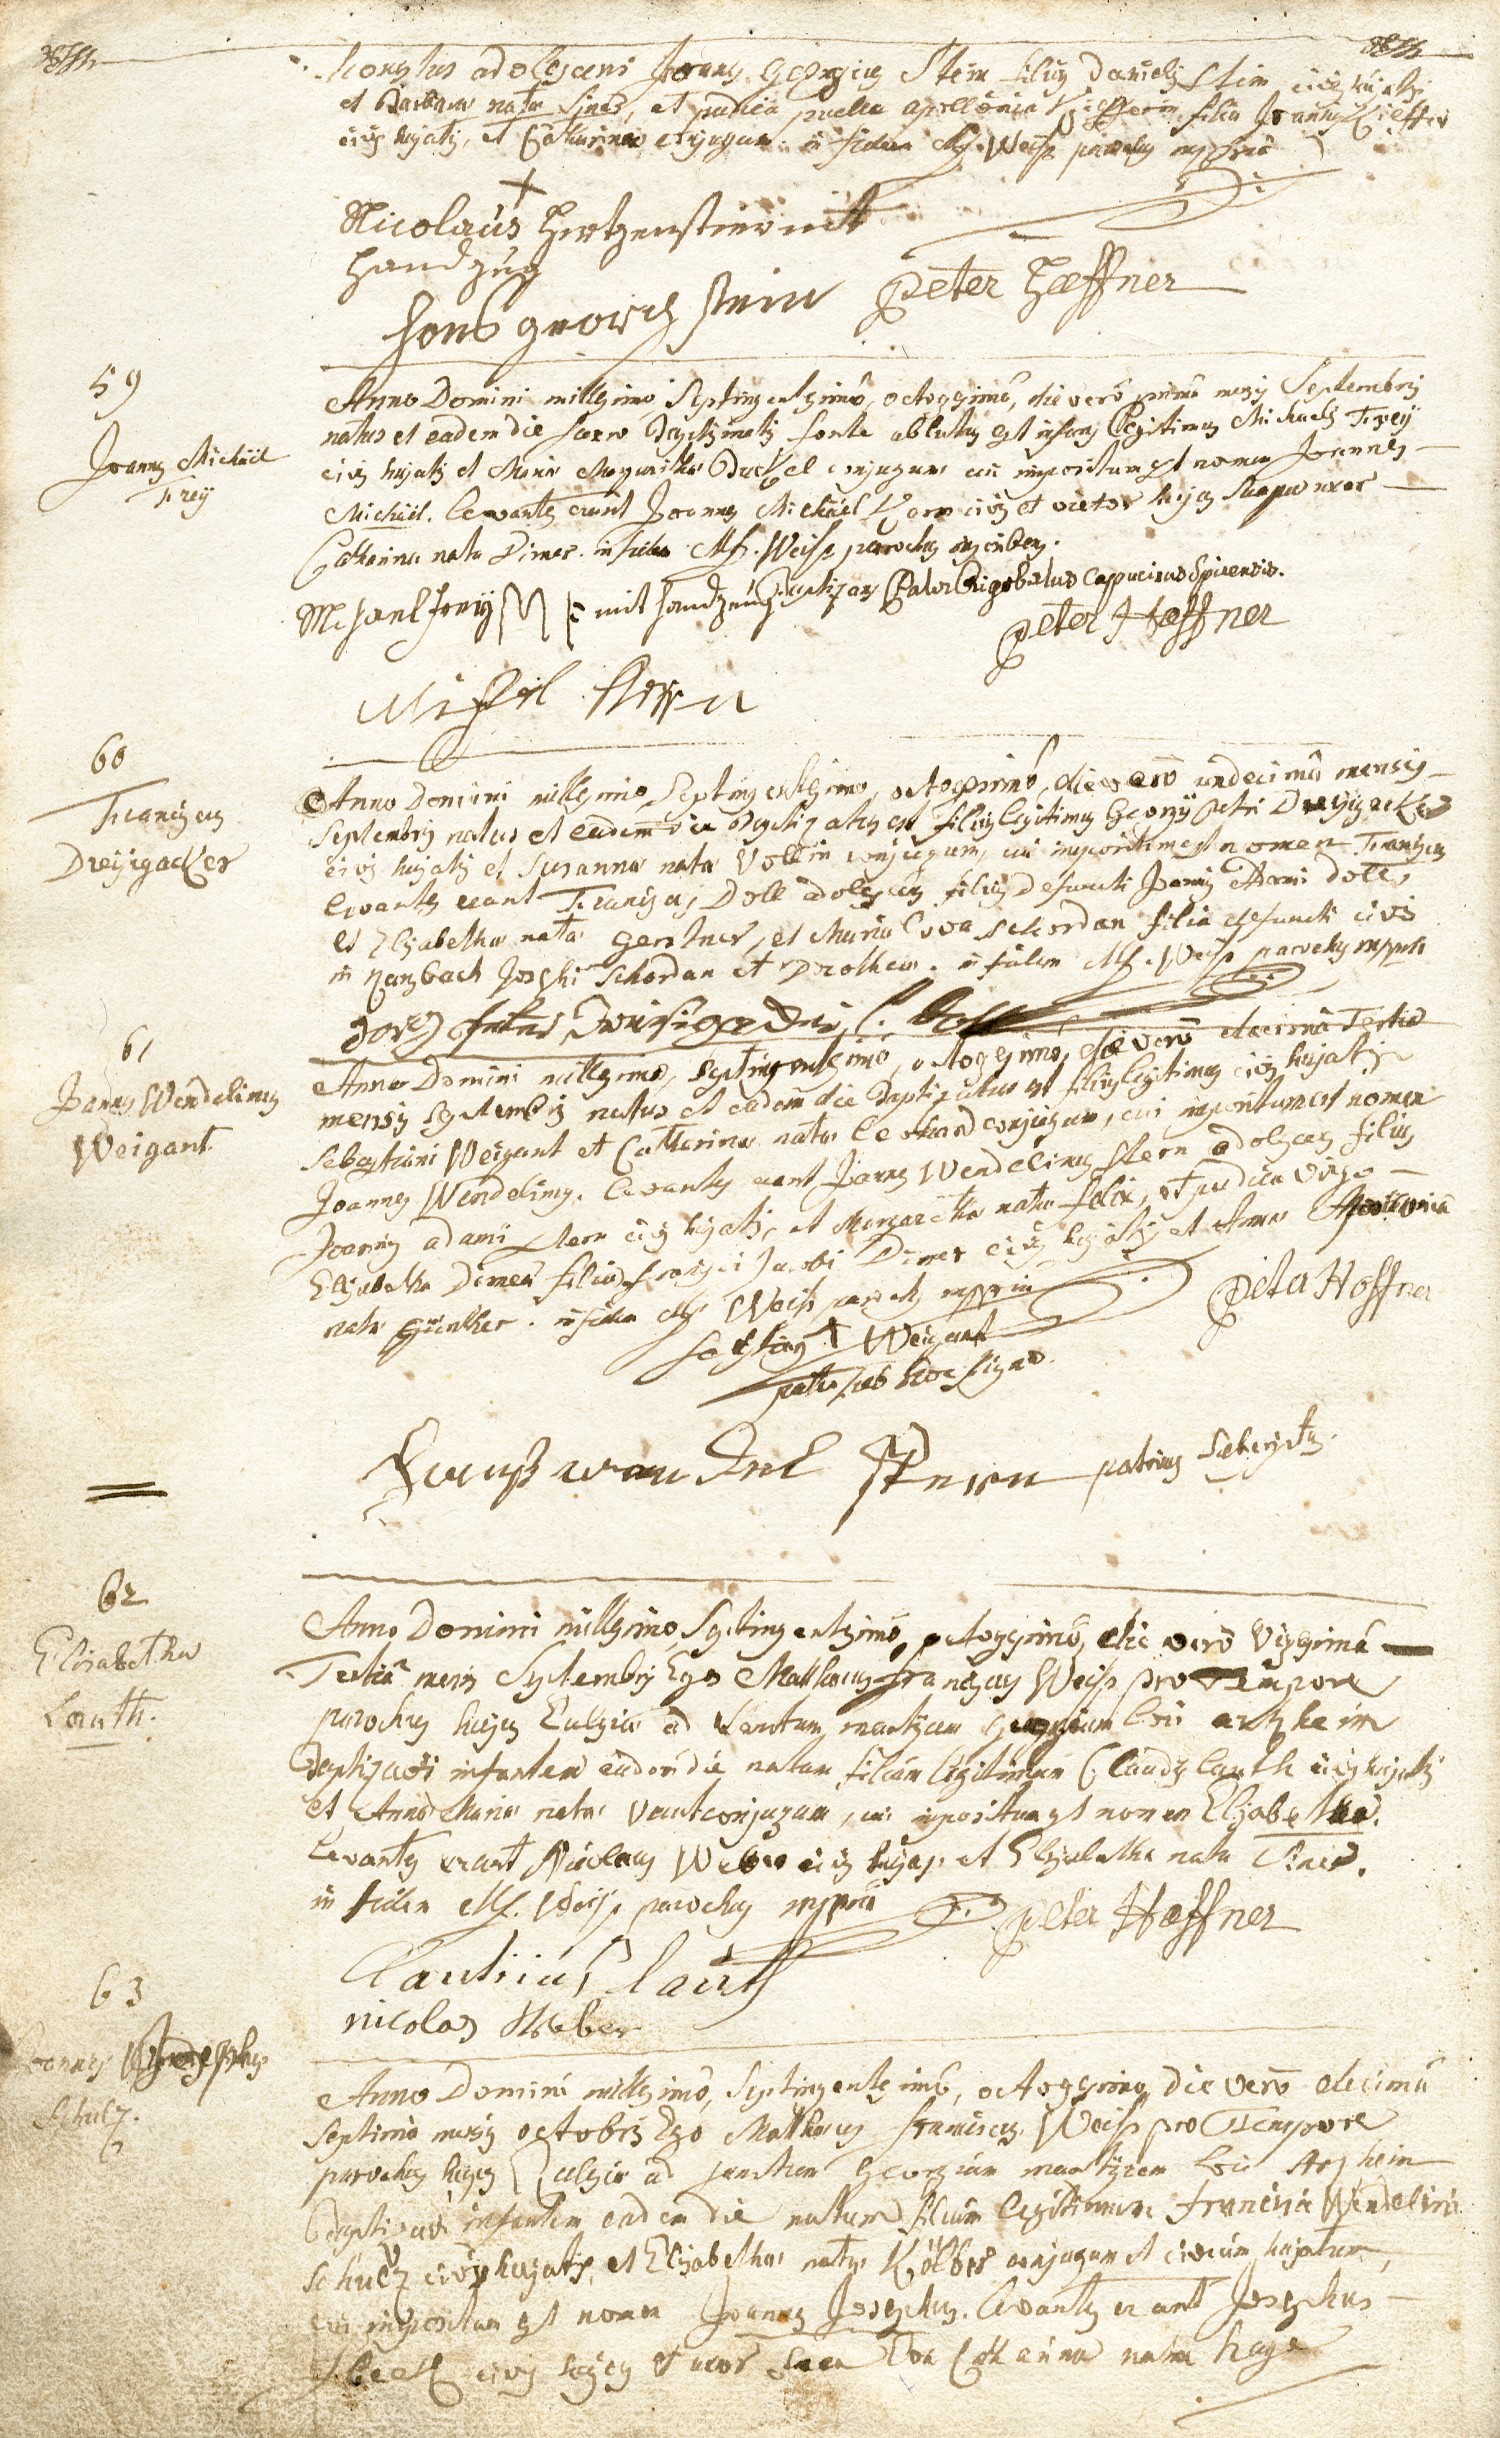 honestus adolescens Joannes Georgius Stein filius Danielis Stein civis hujatis
et Barbarae natae Sines, et pudica puella Apollonia Kiefferin filia Joannis Kieffer
civis hujatis, et Catharinae conjugum. in fidem Mf. Weiss parochus mppria
Nicolaus Hertzenstier mit
handzug
Hans georch stein Peter Hæffner
59
Joannes Michäel
Frey
Anno Domini millesimo, Septingentesimo, octogesimo, die vero prima mensis Septembris
natus et eadem die sacro Baptismatis fonte ablutus est infans legitimus Michaelis Frey
civis hujatis et Mariae Margarithae Duckel conjugum cui impositum est nomen Joannes
Michäel. levantes erant Joannes Michäel Kern civis et vietor hujas suaque uxor
Catharina nata Dimer. in fidem Mf. Weiss parochus
Michael frey mit handzeug Baptizans Pater Rigobertus Capucinus Spirensis.
Peter Hæffner
Michel Kern
60
Franciscus
Dreyigacker
Anno Domini millesimo, Septingentesimo, octogesimo, die vero undecima mensis
Septembris natus et eadem die Baptizatus est filius legitimus Georgij Petri Dreyigacker
civis hujatis et Susanna nata Vollin conjugum, cui impositum est nomen Franciscus
levantes erant Franciscus Doll adolescens filius defuncti Joannis Adami Doll,
et Elisabetha nata Gerstner, et Maria Eva Schordan filia defuncti civis
in Ranzbach Josephi Schordan et Dorotheae. in fidem Mf. Weiss parochus mppria
61
Joannes Wendelinus
Weigant
Anno Domini millesimo, septingentesimo, octogesimo, die vero decima Tertia
mensis Septembris natus et eadem die Baptizatus est filius legitimus civis hujatis
Sebastiani Weigant et Catharinae natae Leonhard conjugum, cui impositum est nomen
Joannes Wendelinus. levantes erant Joannes Wendelinus Stern adolescens filius
Joannis adami Stern civis hujatis, et Margaretha nata felix, et pudica virgo
Elisabetha Dimer filia francisci Jacobi Dimer civis hujatis et Anna Apollonia
nata Günther. in fidem Mf. Weiss parochus mppria
Peter Hoffner
Weigant
pater sub hoc signo
Stern patrinus subscriptus.
62
Elisabetha
Lauth.
Anno Domini millesimo, Septingentesimo, octogesimo, die vero Vigesima
Tertia mensis Septembris Ego Mathaeus franciscus Weiss pro Tempore
parochus hujus Eclesiae ad sanctum martyrem Georgium loci artzheim
baptizavi infantem eadem die natam filiam legitimam Claudij Lauth civis hujatis
et Anna Maria nata Vautconjugum, cui impositum est nomen Elisabetha.
levantes erant Nicolaus Weber civis hujas et Elisabetha nata
in fidem Mf. Weiss parochus mppria
Peter Hæffner
Claudius Lauth
nicolas Weber
63
Joannes Josephus
Schulz.
Anno Domini millesimo, Septingentesimo, octogesimo, die vero decima
Septima mensis octobris Ego Mathaeus franciscus Weiss pro Tempore
parochus hujus Eclesiae ad sanctum Georgium martyrem loci Arzheim
Baptizavi infantem eadem die natum filium legitimum francisci Wendelini
Schulz civis hujatis, et Elisabetha nata Kölber conjugum et civium hujatum,
cui impositum est nomen Joannes Josephus. levantes erant Josephus
civis hujus et uxor sua Eva Catharina nata hage